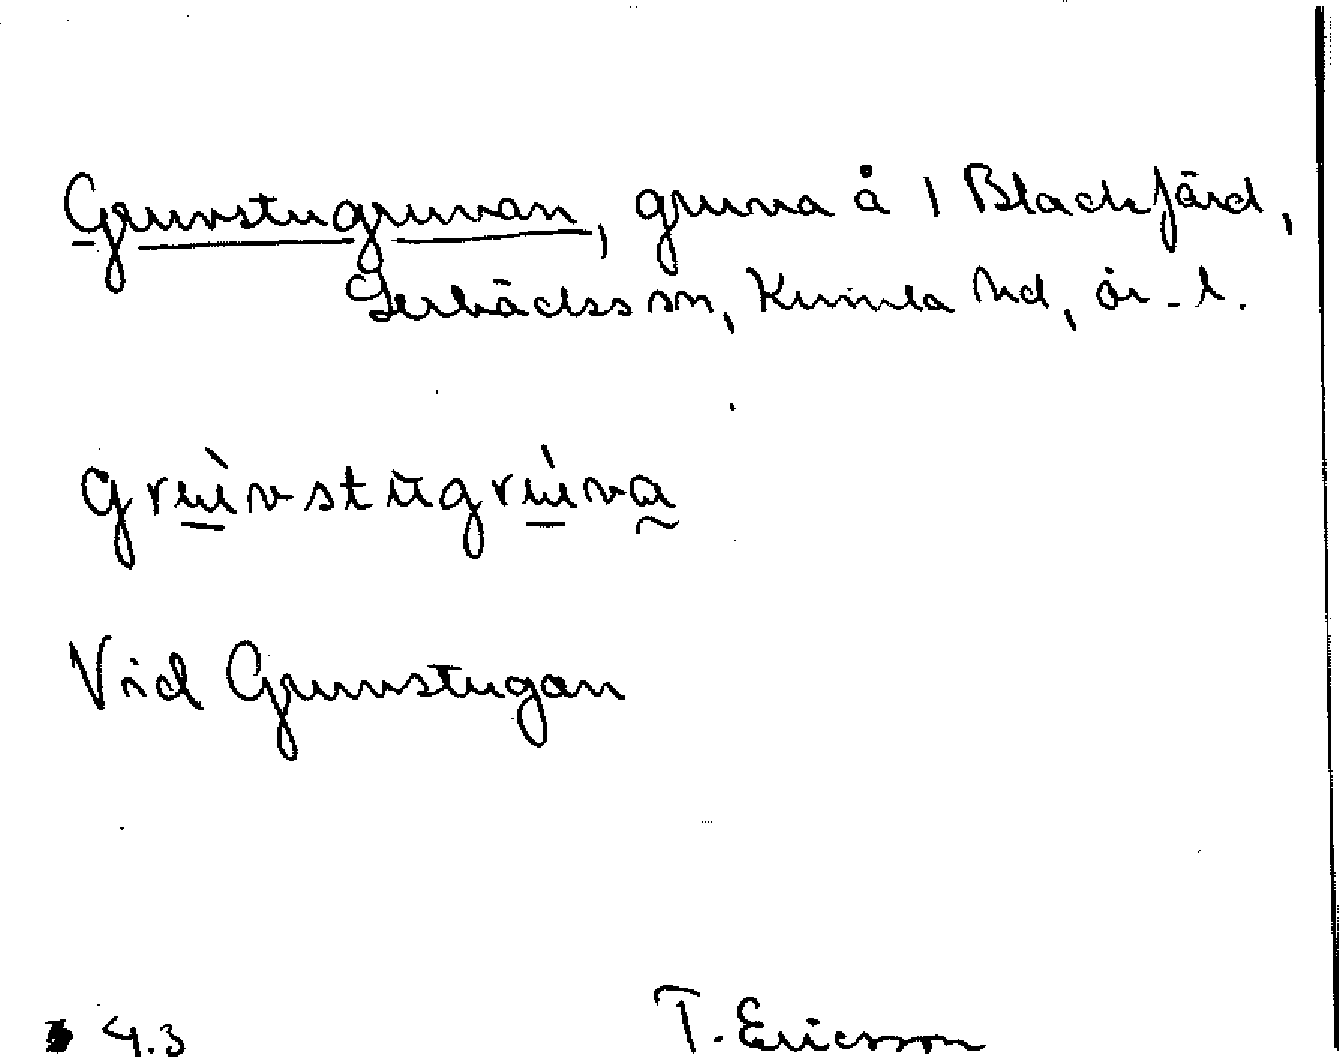 Gruvstugruvan, gruva å 1 Blackfärd,
Lerbäcks sn, Kumla hd, ör. l.
grùvstugrùva
Vid Gruvstugan
4.3 T. Ericsson